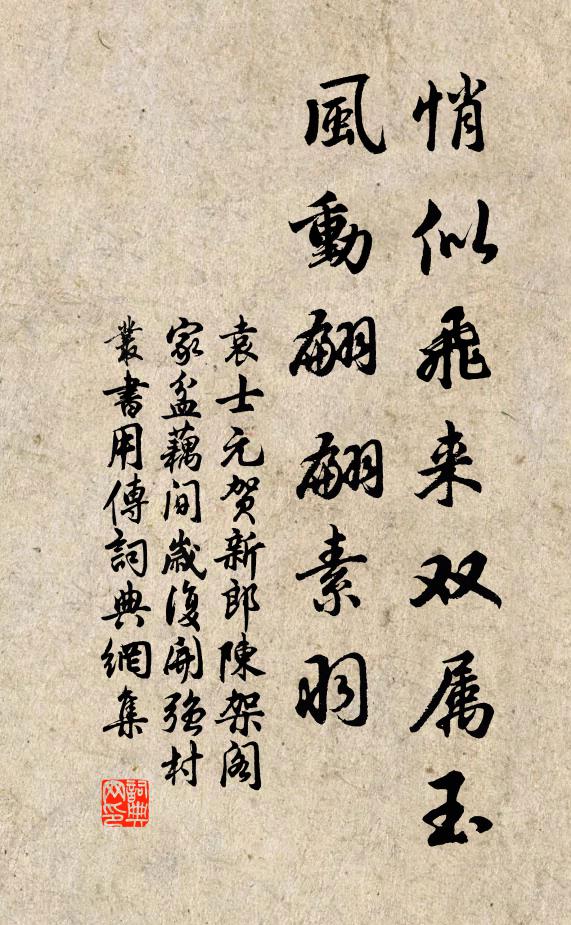 悄似飛来双属玉
風動翩翩素羽
袁士元贺新郎陳架阁
家盆藕间歲復開強村
叢書用傳詞典網集
詞典网印